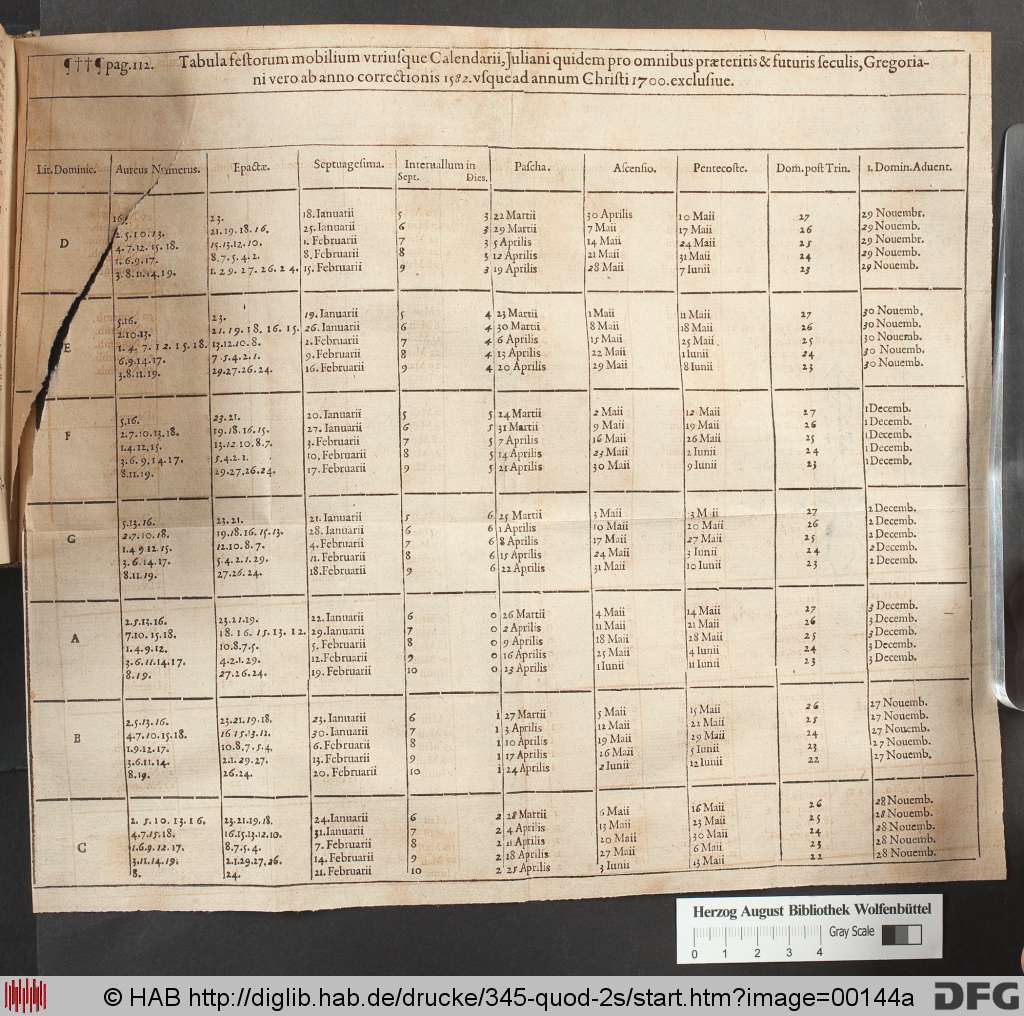 ¶††¶ pag. 112. Tabula festorum mobilium vtriusque Calendarii, Juliani quidem pro omnibus præteritis & futuris seculis, Gregoria-
ni vero ab anno correctionis 1582. vsque ad annum Christi 1700. exclusiue.
Lit. Dominic. Aureus Numerus. Epactæ. Septuagesima. Interuallum in Pascha. Ascensio. Pentecoste. Dom. post Trin. 1. Domin. Aduent.
Sept. Dies.
16. 23. 18. Ianuarii 5 3 22 Martii 30 Aprilis 10 Maii 27 29 Nouembr.
2. 5. 10. 13. 21. 19. 18. 16. 25. Ianuarii 6 3 29 Martii 7 Maii 17 Maii 26 29 Nouemb.
D 4. 7. 12. 15. 18. 15. 13. 12. 10. 1. Februarii 7 3 5 Aprilis 14 Maii 24 Maii 25 29 Nouembr.
1. 6. 9. 17. 8. 7. 5. 4. 2. 8. Februarii 8 3 12 Aprilis 21 Maii 31 Maii 24 29 Nouemb.
3. 8. 11. 14. 19. 1. 29. 27. 26. 24. 15. Februarii 9 3 19 Aprilis 28 Maii 7 Iunii 23 29 Nouemb.
5. 16. 23. 19. Ianuarii 5 4 23 Martii 1 Maii 11 Maii 27 30 Nouemb.
2. 10. 13. 21. 19. 18. 16. 15. 26. Ianuarii 6 4 30 Martii 8 Maii 18 Maii 26 30 Nouemb.
E 1. 4. 7. 12. 15. 18. 13. 12. 10. 8. 2. Februarii 7 4 6 Aprilis 15 Maii 25 Maii 25 30 Nouemb.
6. 9. 14. 17. 7. 5. 4. 2. 1. 9. Februarii 8 4 13 Aprilis 22 Maii 1 Iunii 24 30 Nouemb.
3. 8. 11. 19. 29. 27. 26. 24. 16. Februarii 9 4 20 Aprilis 29 Maii 8 Iunii 23 30 Nouemb.
5. 16. 23. 21. 20. Ianuarii 5 5 24 Martii 2 Maii 12 Maii 27 1 Decemb.
2. 7. 10. 13. 18. 19. 18. 16. 15. 27. Ianuarii 6 5 31 Martii 9 Maii 19 Maii 26 1 Decemb.
F 1. 4. 12. 15. 13. 12. 10. 8. 7. 3. Februarii 7 5 7 Aprilis 16 Maii 26 Maii 25 1 Decemb.
3. 6. 9. 14. 17. 5. 4. 2. 1. 10. Februarii 8 5 14 Aprilis 23 Maii 2 Iunii 24 1 Decemb.
8. 11. 19. 29. 27. 26. 24. 17. Februarii 9 5 21 Aprilis 30 Maii 9 Iunii 23 1 Decemb.
5. 13. 16. 23. 21. 21. Ianuarii 5 6 25 Martii 3 Maii 3 Maii 27 2 Decemb.
2. 7. 10. 18. 19. 18. 16. 15. 13. 28. Ianuarii 6 6 1 Aprilis 10 Maii 20 Maii 26 2 Decemb.
G 1. 4 9 12. 15. 12. 10. 8. 7. 4. Februarii 7 6 8 Aprilis 17 Maii 27 Maii 25 2 Decemb.
3. 6. 14. 17. 5. 4. 2. 1. 29. 11. Februarii 8 6 15 Aprilis 24 Maii 3 Iunii 24 2 Decemb.
8. 11. 19. 27. 26. 24. 18. Februarii 9 6 22 Aprilis 31 Maii 10 Iunii 23 2 Decemb.
2. 5. 13. 16. 23. 21. 19. 22. Ianuarii 6 0 26 Martii 4 Maii 14 Maii 27 3 Decemb.
7. 10. 15. 18. 18. 16. 15. 13. 12. 29. Ianuarii 7 0 2 Aprilis 11 Maii 21 Maii 26 3 Decemb.
A 1. 4. 9. 12. 10. 8. 7. 5. 5. Februarii 8 0 9 Aprilis 18 Maii 28 Maii 25 3 Decemb.
3. 6. 11. 14. 17. 4. 2. 1. 29. 12. Februarii 9 0 16 Aprilis 25 Maii 4 Iunii 24 3 Decemb.
8. 19. 27. 26. 24. 19. Februarii 10 0 23 Aprilis 1 Iunii 11 Iunii 23 3 Decemb.
2. 5. 13. 16. 23. 21. 19. 18. 23. Ianuarii 6 1 27 Martii 5 Maii 15 Maii 26 27 Nouemb.
4. 7. 10. 15. 18. 16 15. 13. 12. 30. Ianuarii 7 1 3 Aprilis 12 Maii 22 Maii 25 27 Nouemb.
B 1. 9. 12. 17. 10. 8. 7. 5. 4. 6. Februarii 8 1 10 Aprilis 19 Maii 29 Maii 24 27 Nouemb.
3. 6. 11. 14. 2. 1. 29. 27. 13. Februarii 9 1 17 Aprilis 26 Maii 5 Iunii 23 27 Nouemb.
8. 19. 26. 24. 20. Februarii 10 1 24 Aprilis 2 Iunii 12 Iunii 22 27 Nouemb.
2. 5. 10. 13. 16. 23. 21. 19. 18. 24. Ianuarii 6 2 28 Martii 6 Maii 16 Maii 26 28 Nouemb.
4. 7. 15. 18. 16. 15. 13. 12. 10. 31. Ianuarii 7 2 4 Aprilis 13 Maii 23 Maii 25 28 Nouemb.
C 1. 6. 9. 12. 17. 8. 7. 5. 4. 7. Februarii 8 2 11 Aprilis 20 Maii 30 Maii 24 28 Nouemb.
3. 11. 14. 19. 2. 1. 29. 27. 26. 14. Februarii 9 2 18 Aprilis 27 Maii 6 Maii 23 28 Nouemb.
8. 24. 21. Februarii 10 2 25 Aprilis 3 Iunii 13 Maii 22 28 Nouemb.
Herzog August Bibliothek Wolfenbüttel
Gray Scale
0 1 2 3 4
© HAB http://diglib.hab.de/drucke/345-quod-2s/start.htm?image=00144a DFG